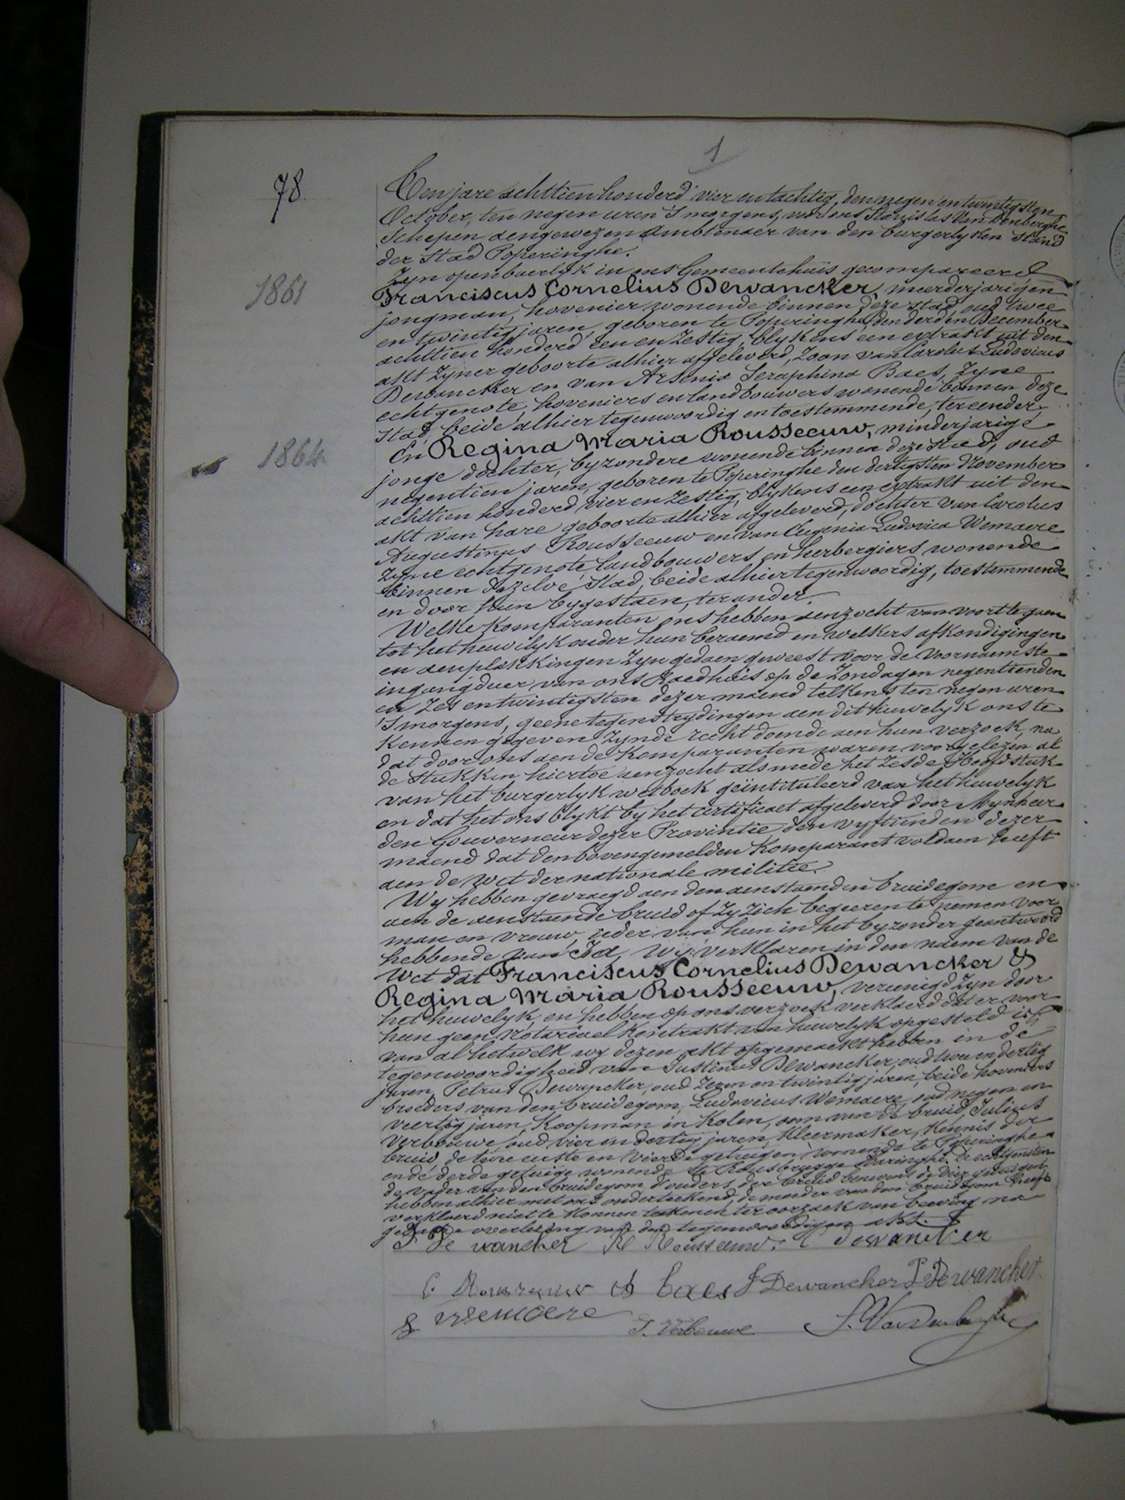 1
78
Ten jare achttien honderd vier en tachtig, den negen en twintigsten
October, ten negen uren 's morgens, voor ons Vandenberghe
Schepen aengewezen Ambtenaer van den burgerlyken Stand
der Stad Poperinghe.
Zyn openbaerlyk in ons Gemeentehuis gecompareerd
1861
Franciscus Cornelius Dewancker, meerderjarigen
jongman, hovenier, wonende binnen deze stad, oud twee
en twintig jaren, geboren te Poperinghe, den derden December
achttien honderd een en zestig, blykens een extrakt uit den
akt zyner geboorte alhier afgeleverd, Zoon van Carolus Ludovicus
Dewancker en van Arsenia Seraphina Baes, Zyne
echtgenote, hoveniers en landbouwers wonende binnen deze
Stad, beide alhier tegenwoordig en toestemmende, ter eender.
1864
En Regina Maria Rousseeuw, minderjarige
jonge dochter, byzondere wonende binnen deze stad, oud
negentien jaren, geboren te Poperinghe den dertigsten November
achttien honderd vier en zestig, blykens een extrakt uit den
akt van hare geboorte alhier afgeleverd, dochter van Carolus
Augustinus Rousseeuw en van Eugenia Ludovica Wemaere
Zyne echtgenote landbouwers en herbergiers wonende
binnen dezelve Stad, beide alhier tegenwoordig, toestemmende
en door hun bygestaen, ter ander.
Welke komparanten ons hebben aenzocht van voort te gaen
tot het huwelyk onder hun beraemd en welkers afkondigingen
en aenplakkingen zyn gedaen geweest voor de voornaemste
ingangdeur van ons Raedhuis op de zondagen negentienden
en zes en twintigsten dezer maend telkens ten negen uren
's morgens, geene tegenstrydingen aen dit huwelyk ons te
kennen gegeven zynde recht doende aen hun verzoek, na
dat door ons aen de komparanten waren voorgelezen al
de stukken hiertoe aenzocht alsmede het zesde Hoofdstuk
van het burgerlyk wetboek geïntituleerd van het huwelyk
en dat het ons blykt by het certificaet afgeleverd door Mynheer
den Gouverneur dezer Provintie den vyftienden dezer
maend dat den bovengemelden komparant voldaen heeft
aen de wet der nationale militie.
Wy hebben gevraegd aen den aenstaenden bruidegom en
aen de aenstaende bruid of zy zich begeeren te nemen voor
man en vrouw, ieder van hun in het byzonder geantwoord
hebbende van Ja, Wy verklaren in den naem van de
Wet dat Franciscus Cornelius Dewancker &
Regina Maria Rousseeuw, vereenigd zyn door
het huwelyk en hebben op ons verzoek verklaerd dat er voor
hun geen notariëel kontrakt van huwelyk opgesteld is
van al hetwelk wy dezen akt opgemaekt hebben in de
tegenwoordigheid van Justinus Dewancker, oud twee en dertig
jaren, Petrus Dewancker, oud zeven en twintig jaren, beide hoveniers
broeders van den bruidegom, Ludovicus Wemaere, oud negen en
veertig jaren, koopman in kolen, oom van de bruid, Julius
Verbouwe, oud vier en dertig jaren, kleermaker, kennis der
bruid, de twee eerste en vierde getuigen wonende te Poperinghe
en de derde getuige wonende te Poperinghe, de echtgenoten
de vader van den bruidegom, d'ouders der bruid benevens de vier getuigen
hebben alhier met ons onderteekend, de moeder van den bruidegom heeft
verklaerd niet te konnen teekenen ter oorzaek van beeving na
gedane overlezing van den tegenwoordigen akt.
F De wancker R Rousseeuw C Dewancker
C Rousseeuw Baes J Dewancker P Dewancker
L Wemaere J. Verbouwe